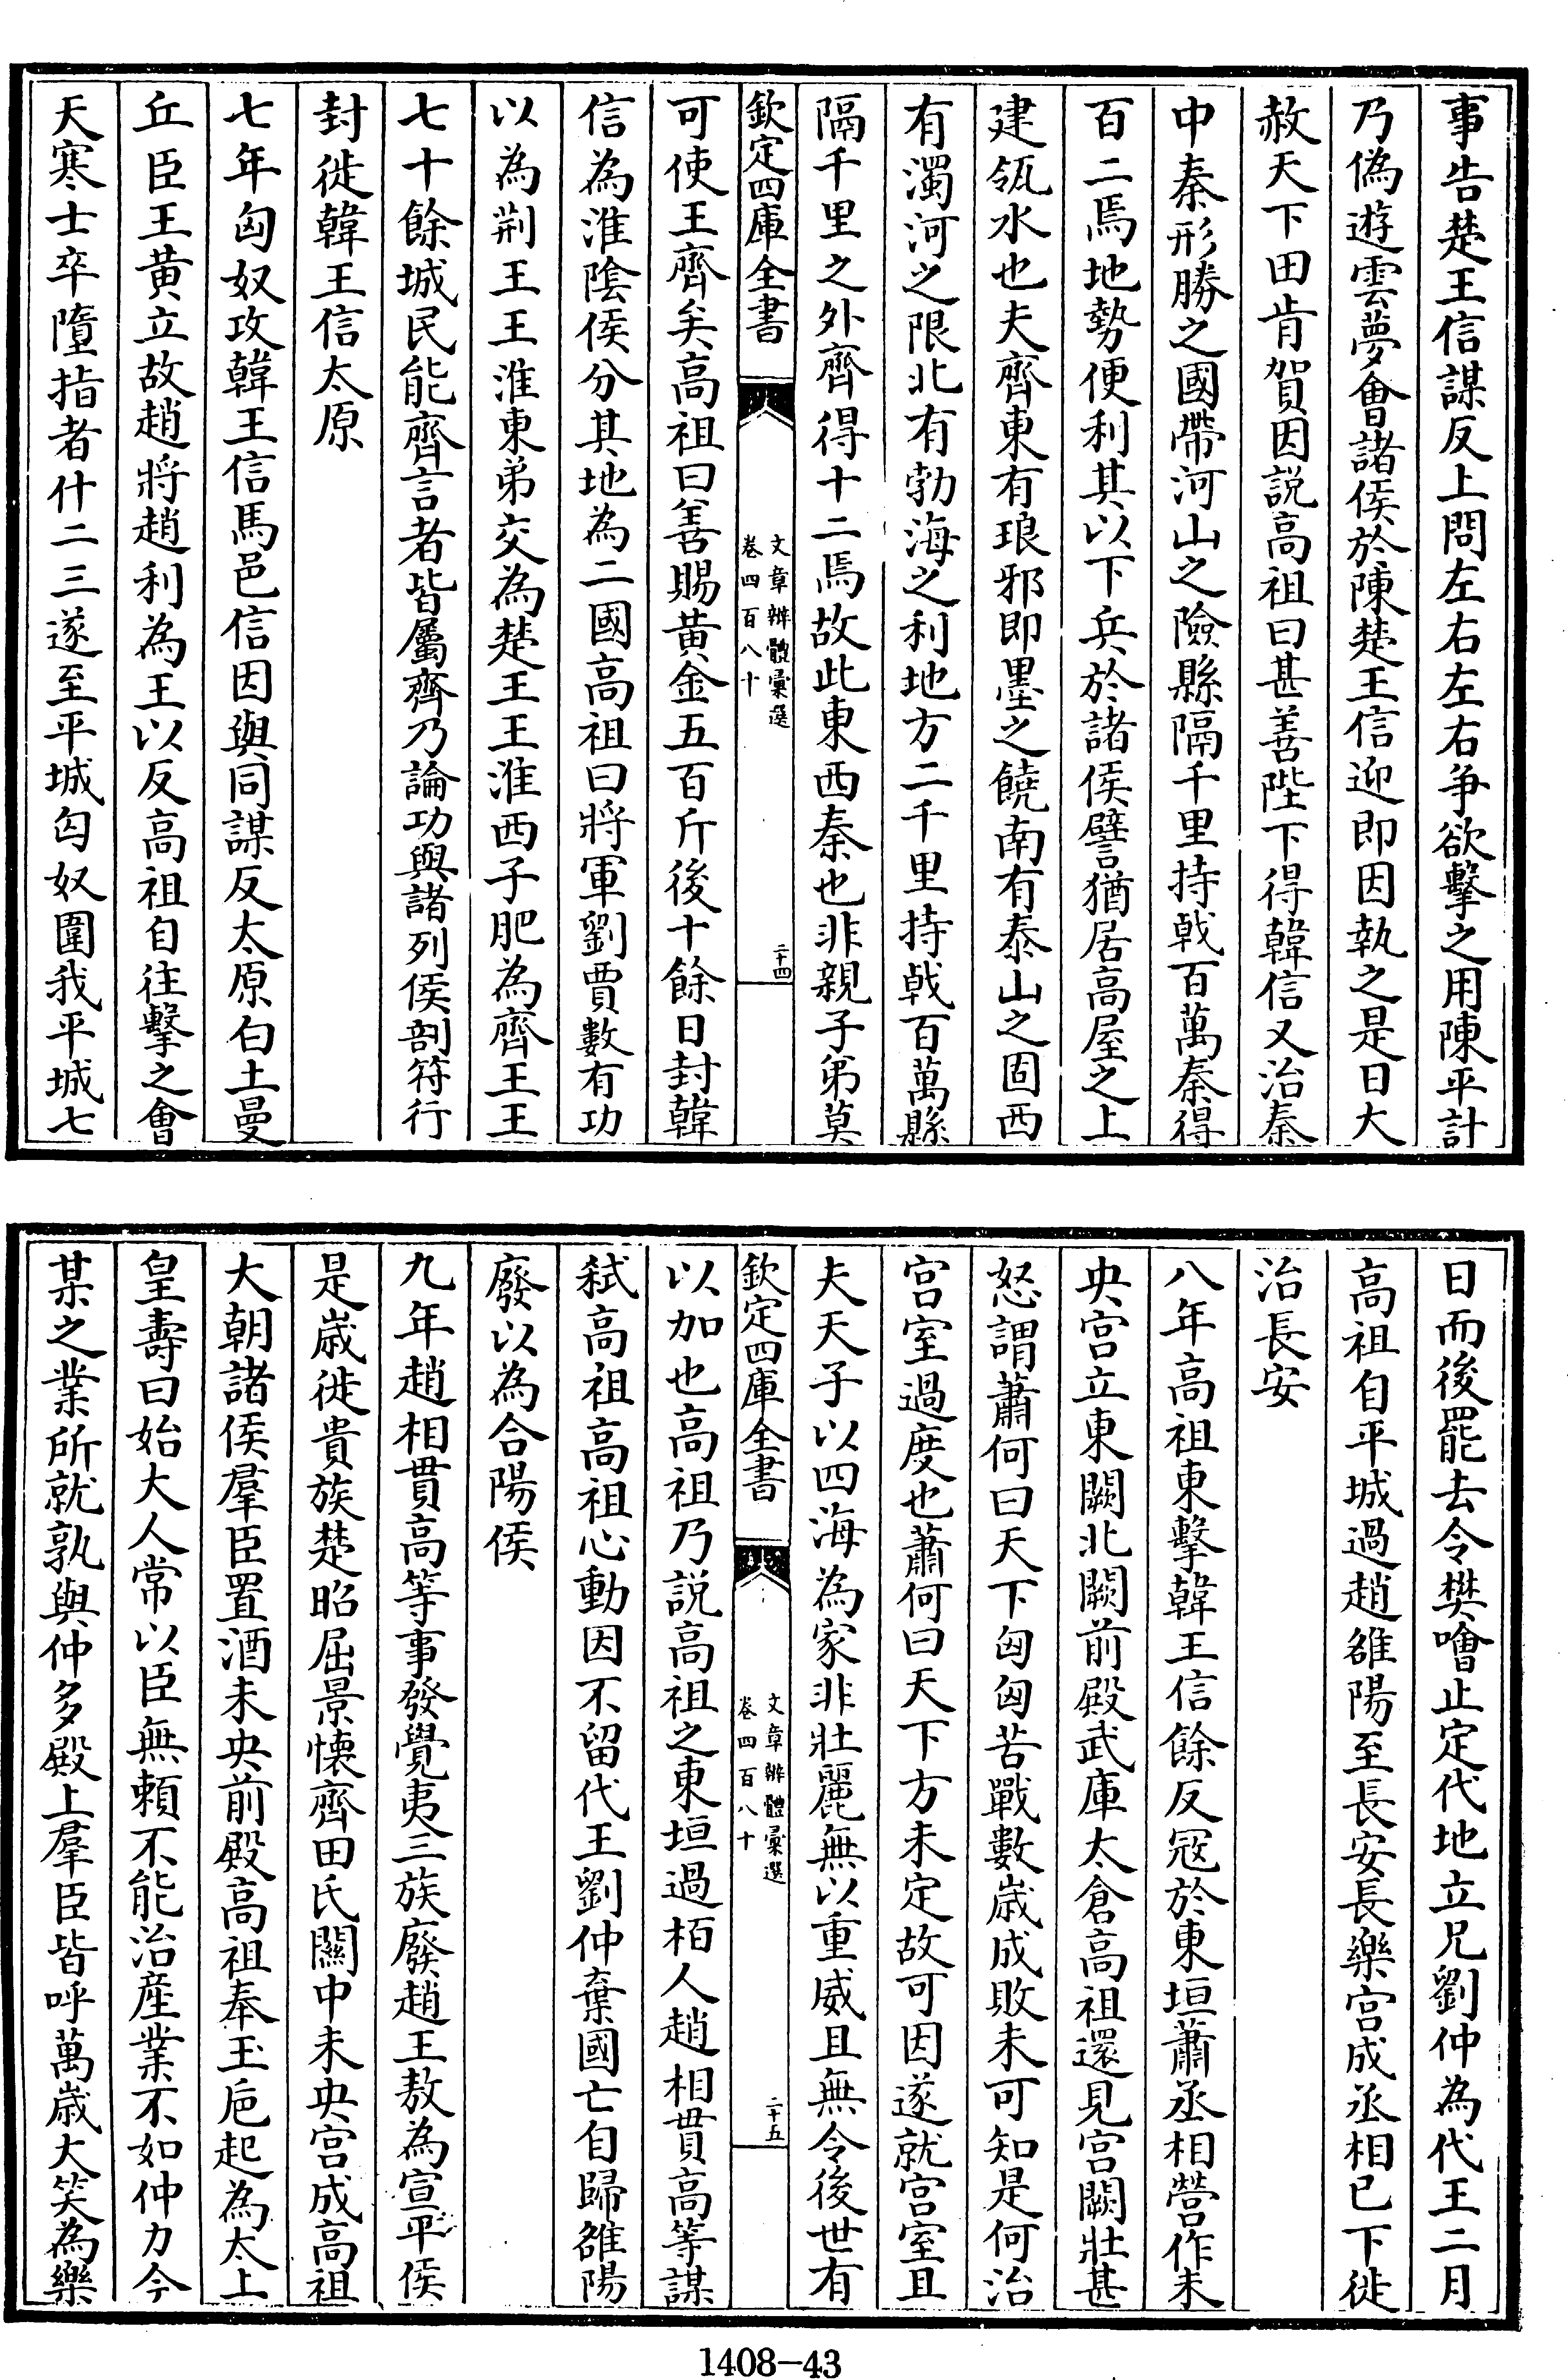 事告楚王信謀反上問左右左右争欲擊之用陳平計
乃偽遊雲夢會諸侯於陳楚王信迎即因執之是日大
赦天下田肯賀因説高祖曰甚善陛下得韓信又治秦
中秦形勝之國帶河山之險縣隔千里持戟百萬秦得
百二焉地勢便利其以下兵於諸侯譬猶居高屋之上
建瓴水也夫齊東有琅邪即墨之饒南有泰山之固西
有濁河之限北有勃海之利地方二千里持戟百萬縣
隔千里之外齊得十二焉故此東西秦也非親子弟莫
欽定四庫全書
文章辨體彙選
卷四百八十
二十四
可使王齊矣高祖曰善賜黄金五百斤後十餘日封韓
信為淮陰侯分其地為二國高祖曰將軍劉賈數有功
以為荆王王淮東弟交為楚王王淮西子肥為齊王王
七十餘城民能齊言者皆屬齊乃論功與諸列侯剖符行
封徙韓王信太原
七年匈奴攻韓王信馬邑信因與同謀反太原白土曼
丘臣王黄立故趙將趙利為王以反高祖自往擊之會
天寒士卒墮指者什二三遂至平城匈奴圍我平城七
日而後罷去令樊噲止定代地立兄劉仲為代王二月
高祖自平城過趙雒陽至長安長樂宫成丞相已下徙
治長安
八年高祖東擊韓王信餘反冦於東垣蕭丞相營作未
央宫立東闕北闕前殿武庫太倉高祖還見宫闕壯甚
怒謂蕭何曰天下匈匈苦戰數歲成敗未可知是何治
宫室過度也蕭何曰天下方未定故可因遂就宫室且
夫天子以四海為家非壯麗無以重威且無令後世有
欽定四庫全書
文章辨體彙選
卷四百八十
二十五
以加也高祖乃説高祖之東垣過栢人趙相貫高等謀
弑高祖高祖心動因不留代王劉仲棄國亡自歸雒陽
廢以為合陽侯
九年趙相貫高等事發覺夷三族廢趙王敖為宣平侯
是歲徙貴族楚昭屈景懷齊田氏關中未央宫成高祖
大朝諸侯羣臣置酒未央前殿高祖奉玉巵起為太上
皇壽曰始大人常以臣無賴不能治産業不如仲力今
某之業所就孰與仲多殿上羣臣皆呼萬歲大笑為樂
1408-43